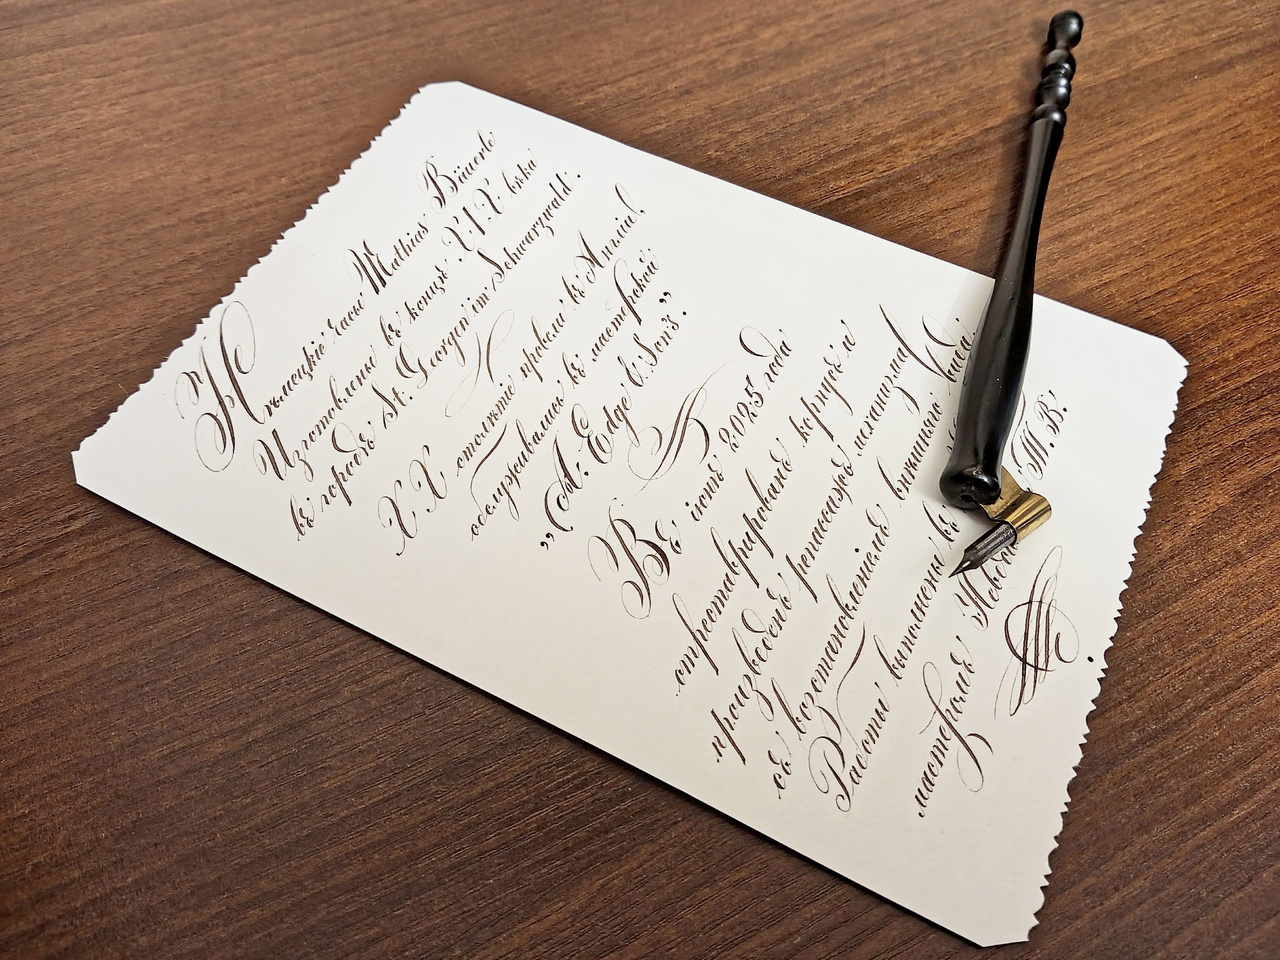 Нѣмецкіе часы Mathias Bäuerle
Изготовлены въ концѣ XIX вѣка
въ городѣ St. Georgen im Schwarzwald.
XX столѣтіе провели въ Англіи,
обслуживались въ мастерской
„A. Edge & Sons”.
Въ 2025 года
отреставрированъ корпусъ и
произведенъ репассажъ механизма
съ возстановленіемъ внѣшняго вида.
Работы выполнены въ
мастеромъ Т.В.